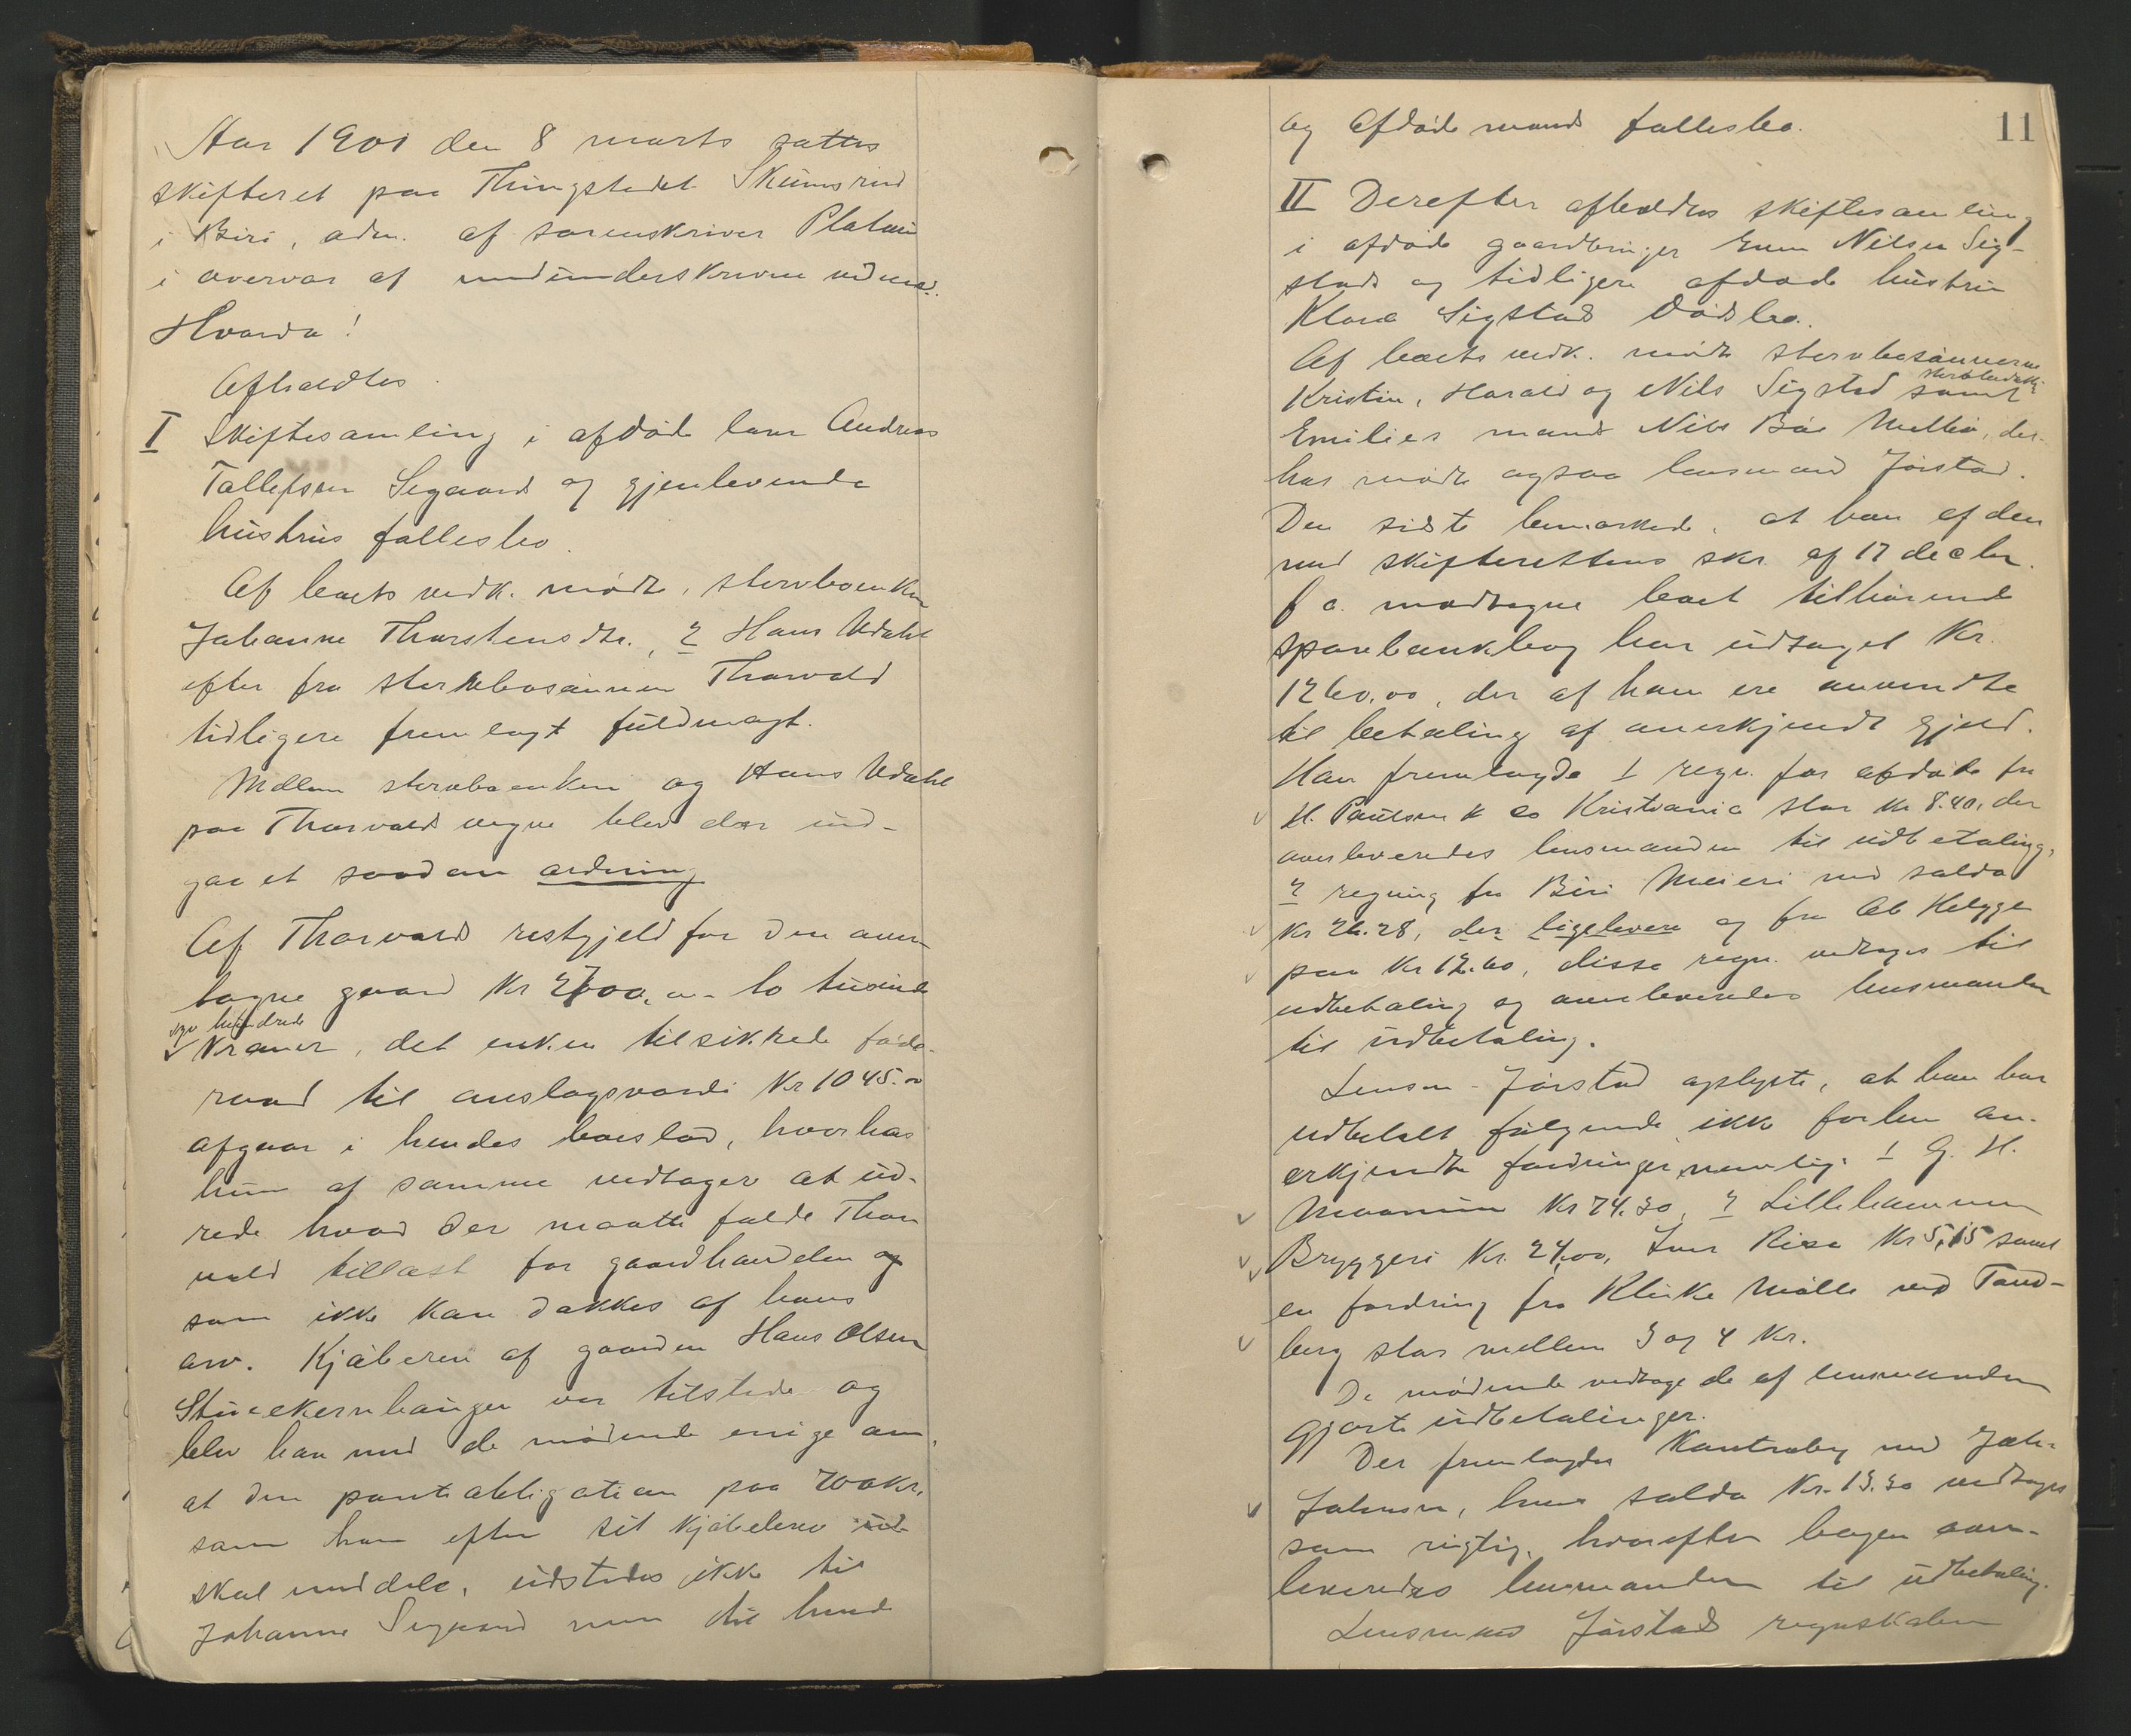 Aar 1901 den 8 marts sattes
skifteret paa Thingstedet Skumsrud
i Biri, adm. af sorenskriver Platou
i overvær af medunderskrevne vidner.
Hvorda!
Afholdtes
I Skiftesamling i afdøde Andreas
Tollefsen Segaard og gjenlevende
hustrus fællesbo.
Af boets vedk. mødte, stervboenken
Johanne Thorstensdtr., 2 Hans Udahl
efter fra stervbosønnen Thorvald
tidligere fremlagt fuldmagt.
Mellem stervboenken og Hans Udahl
paa Thorvalds vegne blev der ind-
gaaet saadan ordning
Af Thorvalds restgjeld for den over-
tagne gaard Kr 2700,00 - to tusinde
syv hundrede
Kroner, det enken tilsikrede føde-
raad til anslagsværdi Kr 1045.00
afgaar i hendes boeslod, hvorhos
hun af samme vedtager at ud-
rede hvad der maatte falde Thor
vald tillast for gaardhandelen og
som ikke kan dækkes af hans
arv. Kjøberen af gaarden Hans Olsen
var tilstede og
blev han med de mødende enige om,
at den pantobligation paa 700 kr,
som han efter sit kjøbebrev
skal meddele, udstedes ikke til
Johanne Segaard men til hende
11
og afdøde mands fællesbo.
II Derefter afholdtes skiftesamling
i afdøde gaardbruger Even Nilsen Sig-
stad og tidligere afdøde hustru
Klara Sigstads dødsbo.
Af boets vedk. mødte stervbosønnerne
Kristin, Harald og Nils Sigstad samt
Emilies mand Nils Bøe Melbø, der-
hos mødte ogsaa lensmand Jørstad.
Den sidste bemærkede, at han af den
med skifterettens skr. af 17 decbr.
f a. modtagne boet tilhørende
sparebankbog har udtaget Kr.
1260.00, der af ham ere anvendte
til betaling af anerkjendt gjeld.
Han fremlagde 1 regn. for afdøde fra
H. Paulsen & Co Kristiania stor kr 8.40, der
overleveredes lensmanden til udbetaling,
2 regning fra Biri Meieri med saldo
Kr 26.28, der ligeleveres og fra
paa Kr 12.60, disse regn. vedtages til
udbetaling og overleveredes lensmanden
til udbetaling.
Lensm. Jørstad oplyste, at han har
udbetalt følgende ikke forhen an-
erkjendte fordringer nemlig: 1 G. H.
Kr 74.30, 2 Lillehammer
Bryggeri Kr. 24,00, Iver Kr 5,15 samt
en fordring fra Klinke Mølle ved Tand-
berg stor mellem 3 og 4 Kr.
De mødende vedtoge de af lensmanden
gjorte udbetalinger.
Der fremlagdes Kontrabog med Joh.
Johnsen, hvis saldo Kr. 13.30 vedtages
som rigtig, hvorefter bogen over-
leveredes lensmanden til udbetaling.
Lensmand Jørstads regnskaber